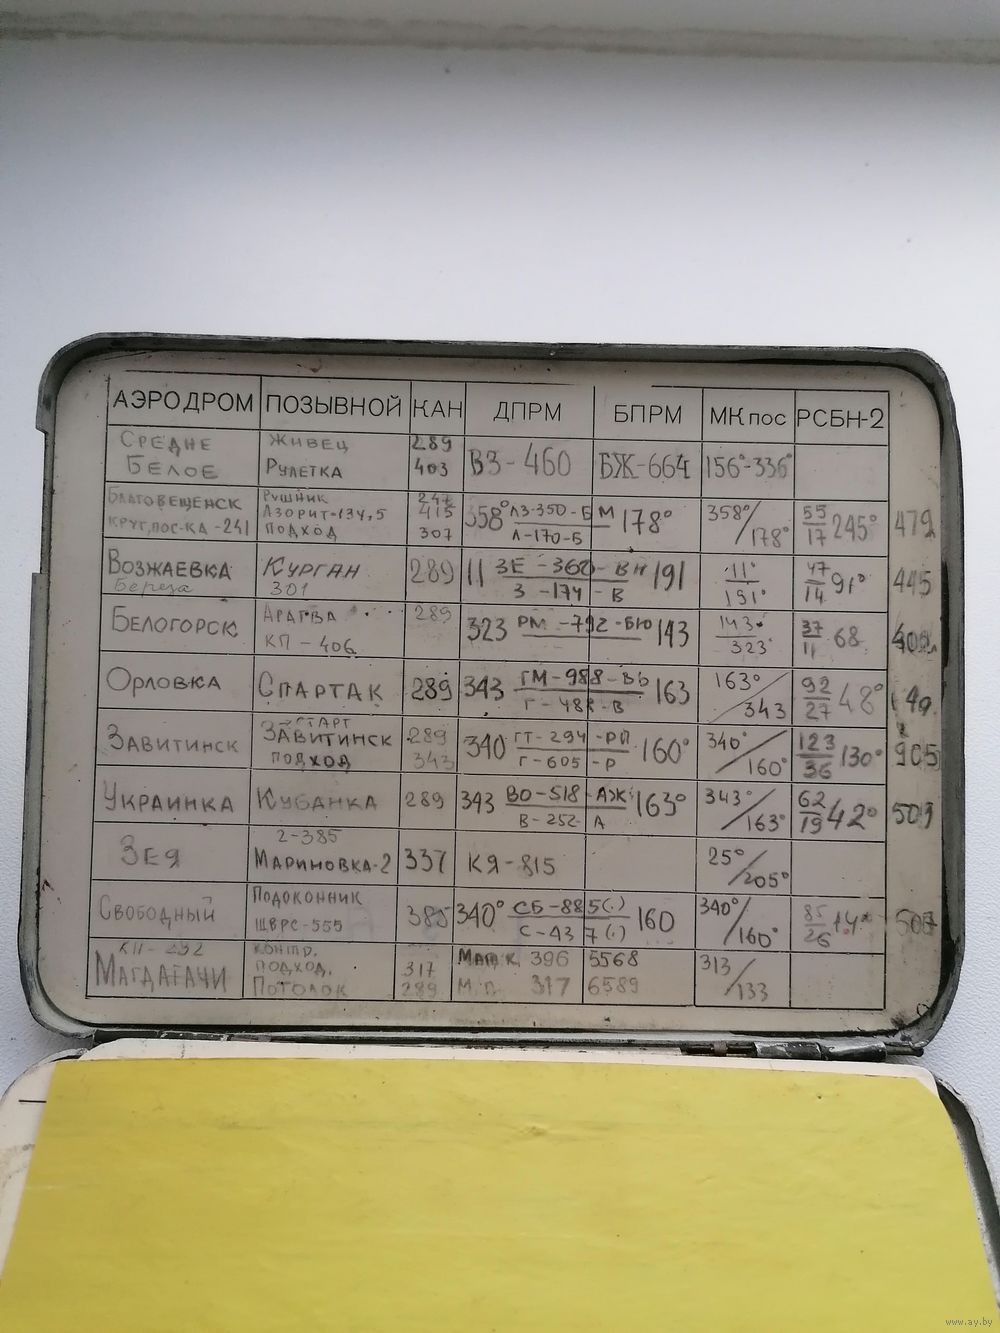 АЭРОДРОМ ПОЗЫВНОЙ КАН ДПРМ БПРМ МК пос РСБН-2
СРЕДНЕ ЖИВЕЦ 289
БЕЛОЕ РУЛЕТКА 403 ВЗ-460 БЖ-664 156°-336°
БЛАГОВЕЩЕНСК РУШНИК 247
КРУГ,ПОС-КА -241 ЛАЗОРИТ-134,5 415 358° ЛЗ-350-БМ 178° 358°/178° 55/17 245° 479
ПОДХОД 307 Л-170-Б
ВОЗЖАЕВКА КУРГАН 289 11 ЗЕ-360-ВН 191 11°/191° 47/14 91° 445
Береза 301 З-174-В
БЕЛОГОРСК АРАГВА 289 323 РМ-792-БЮ 143 143°/323° 37/11 68
КП-406
ОРЛОВКА СПАРТАК 289 343 ГМ-988-ВЬ 163 163°/343 92/27 48°
Г-488-В
СТАРТ
ЗАВИТИНСК ЗАВИТИНСК 289 340° ГТ-294-РП 160° 340°/160° 123/36 130° 905
ПОДХОД 343 Г-605-Р
УКРАИНКА КУБАНКА 289 343 ВО-518-АЖ 163° 343°/163° 62/19 42° 503
В-252-А
2-385
ЗЕЯ МАРИНОВКА-2 337 КЯ-815 25°/205°
ПОДОКОННИК
СВОБОДНЫЙ ШВРС-555 385 340° СБ-885(·) 160 340°/160° 85/26 507
С-437(·)
КП-292 КОНТР. МАГ.К 396 5568 313/133
МАГДАГАЧИ ПОДХОД. 317
ПОТОЛОК 289 М.П. 317 6589
www.ay.by